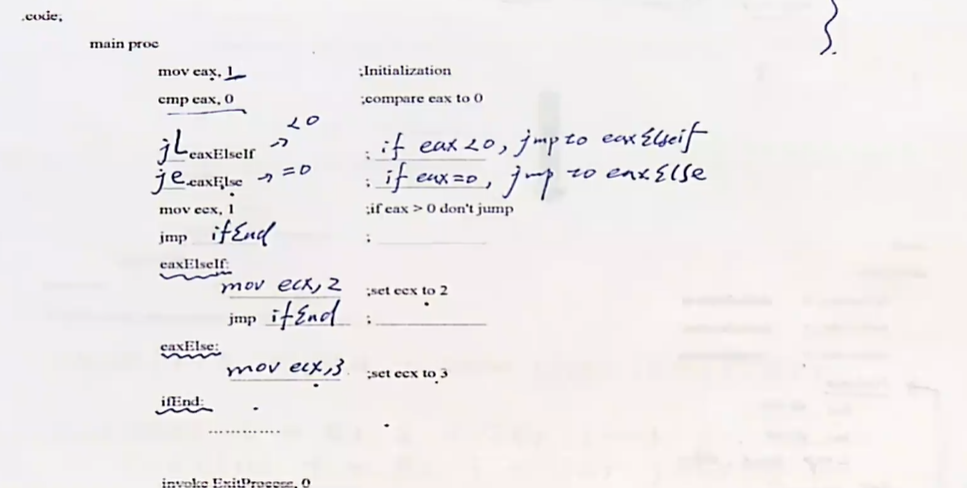 .code;
main proc
mov eax, 1 ;Initialization
cmp eax, 0 ;compare eax to 0
<0
jL eaxElseIf → ; if eax <0, jmp to eaxElseif
je eaxElse → =0 ; if eax=0, jmp to eaxElse
mov ecx, 1 ;if eax > 0 don't jump
jmp ifEnd ;
eaxElseIf:
mov ecx, 2 ;set ecx to 2
jmp ifEnd ;
eaxElse:
mov ecx, 3 ;set ecx to 3
ifEnd:
.............
invoke ExitProcess, 0